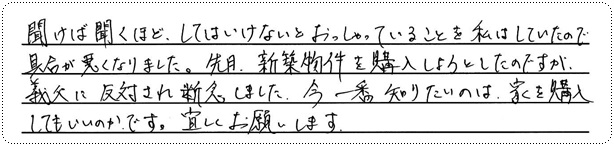 聞けば聞くほど、してはいけないとおっしゃっていることを私はしていたので
具合が悪くなりました。先月、新築物件を購入しようとしたのですが、
義父に反対され断念しました。今一番知りたいのは、家を購入
してもいいのか、です。宜しくお願いします。